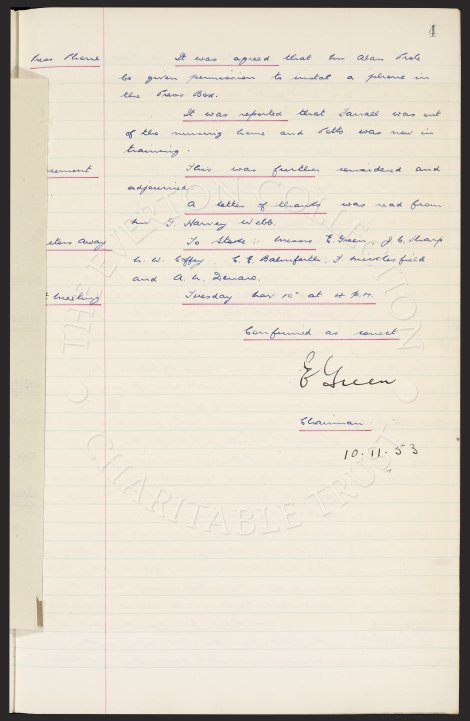 4
Press Phone It was agreed that Mr Alan Prole
be given permission to instal a phone in
the Press Box.
It was reported that Farrall was out
of the nursing home and Potts was now in
training.
eement This was further considered and
adjourned.
A letter of thanks was read from
Mr T. Harvey Webb.
ctors Away To Stoke :- Messrs E. Green, J. C. Sharp
W. Coffey, C. E. Balmforth, F. Micklesfield
and A. W. Denaro.
Meeting Tuesday Nov 10th at 4 p.m.
Confirmed as correct
E Green
Chairman
10.11.53
THE EVERTON COLLECTION
CHARITABLE TRUST